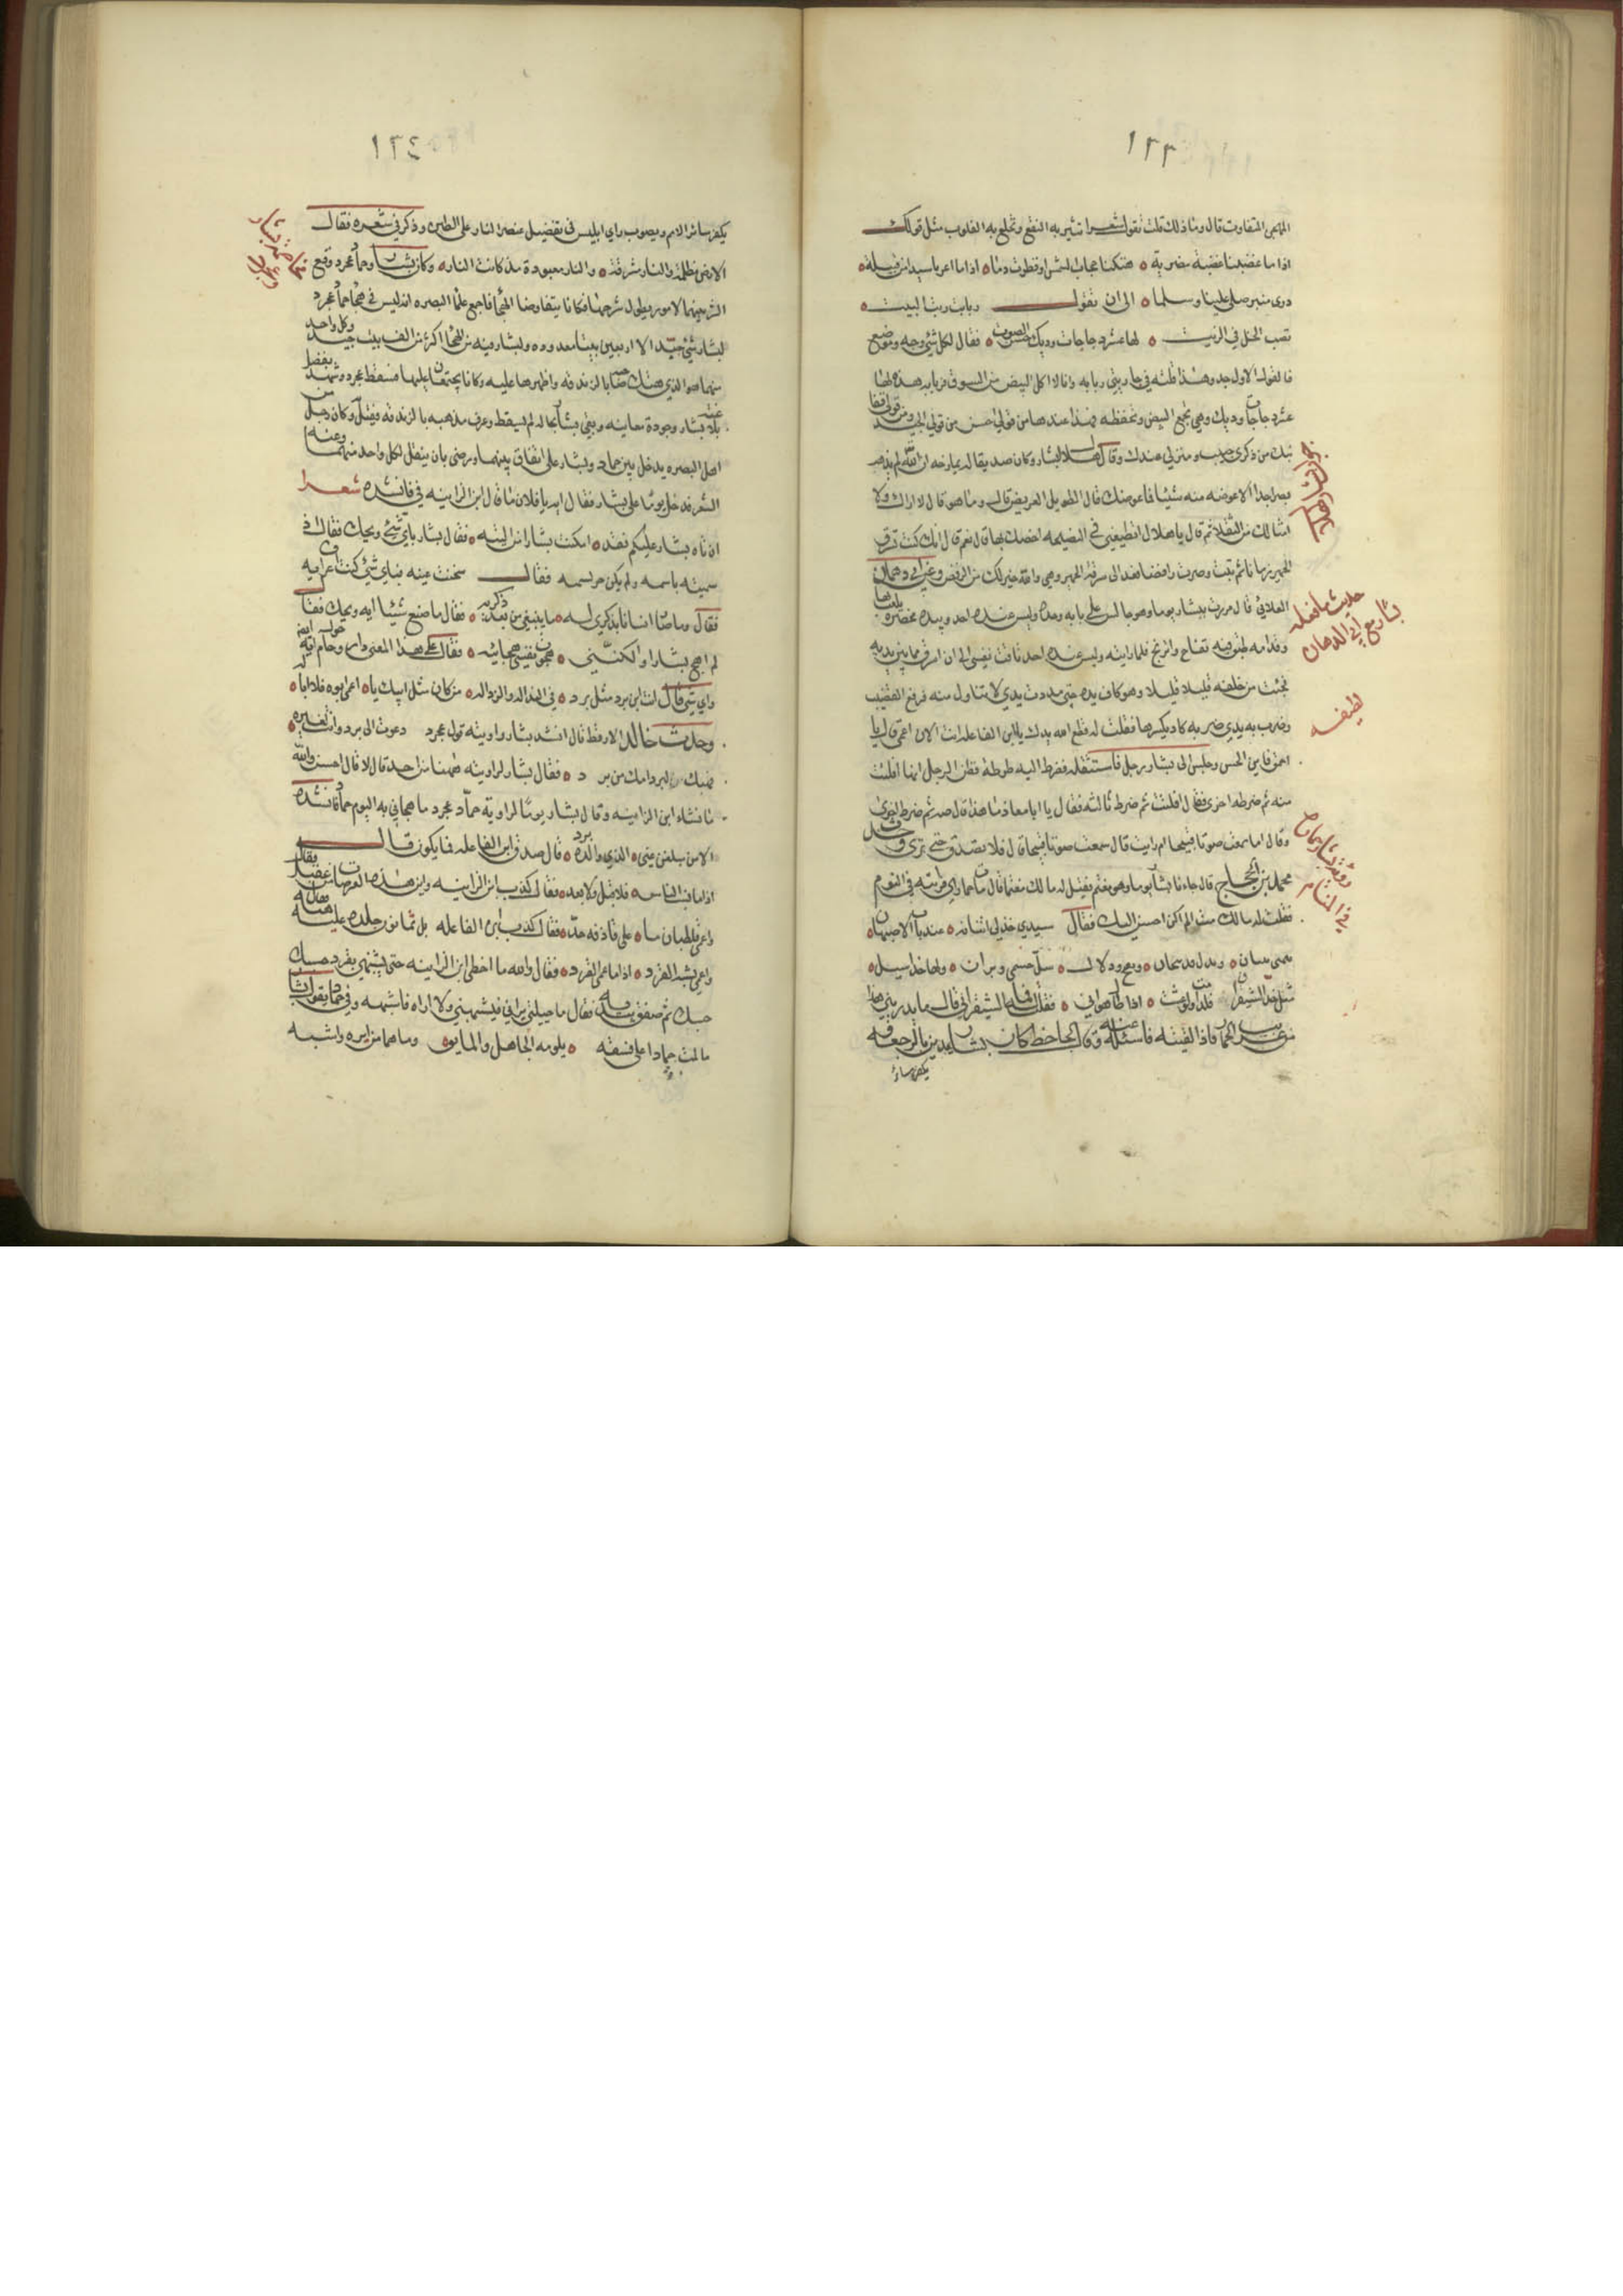 ١٢٣
المهجن المتفاوت قال وما ذلك قلت تقول شعرا تثير به النقع وتخلع به القلوب مثل قولك
اذا ما غضبنا غضبة مضرية ٥ هتكنا حجاب الشمس او قطرت دما ٥ اذا ما اعرنا سيدا من قبيلة ٥
ذرى منبر صلى علينا وسلما ٥ الى ان تقول ربابة ربة البيت ٥
تصب الخل في الزيت ٥ لها عشر دجاجات وديك حسن الصوت ٥ فقال لكل شي وجه وموضع
فالقول الاول جد وهذا قلته في جاريتي ربابه وانا لا اكل البيض من السوق فربابه هذه لها
عشر دجاجات وديك وهي تجمع البيض وتحفظه فهذا عندها من قولي احسن من قولي
نبك من ذكرى حبيب ومنزل عندك وقال هلال لبشار وكان صديقا له يمازحه ان الله لم يذهب
بصر احد الا عوضه منه شيئا فما عوضك قال الطويل العريض قال وما هو قال لا اراك ولا
امثالك من الثقلاء ثم قال يا هلال اتطيعني في النصيحه اخصك بها قال نعم قال انك كنت تسرق
الحمير زمانا ثم تبت وصرت رافضيا فعد الى سرقة الحمير وهي والله خير لك من الرفض وعن ابي دهمان
الغلابي قال مررت ببشار يوما وهو جالس على بابه وحده وليس عنده احد وبيده مخصره يلعب بها
وقدامه طبق فيه تفاح واترنج فلما رايته وليس عنده احد تاقت نفسي الى ان اسرق ما بين يديه
فجئت من خلفه قليلا قليلا وهو كاف يده حتى مددت يدي لاتناول منه فرفع القضيب
وضرب به يدي ضربه كاد يكسرها فقلت له قطع الله يدك يا ابن الفاعله انت الان اعمى قال يا
احمق فاين الحس وجلس الى بشار رجل فاستثقله فضرط اليه ضرطة فظن الرجل انها افلتت
منه ثم ضرطه اخرى فقال افلتت ثم ضرط ثالثه فقال يا ابا معاذ ما هذا قال مه
وقال اما سمعت صوتا قبيحا ام رايت قال سمعت صوتا قبيحا قال فلا تصدق حتى ترى
محمد بن الحجاج قال جاءنا بشار يوما وهو مغتم فقيل له مالك مغتما قال مات حماري فرايته في النوم
فقلت له مالك مت الم اكن احسن اليك فقال سيدي خذ لي اتانا ٥ عند باب الاصبهان ٥
ودلال ٥ سل جسمي وبران ٥ ولها خد اسيل ٥
مثل خد الشيفران فلذا مت ٥ ٥ فقلت له ما الشيفران قال ما يدريني هذا
من غريب الحمار فاذا لقيته فاسئله عنه وقال الجاحظ كان بشار يدين بالرجعه و
يكفر سائر
حديث ما فعله
بشار مع ابي الدهمان
لطيفه
في المنام
١٢٤
يكفر سائر الامم ويصوب راي ابليس في تفضيل عنصر النار على الطين وذكر في شعره فقال
الارض مظلمة والنار مشرقة ٥ والنار معبودة مذ كانت النار ٥ وكان بشار وحماد عجرد وقع
الشر بينهما لامور يطول شرحها فكانا يتقاوضا الهجا فاجمع علما البصره انه ليس في هجا حماد عجرد
لبشار شي جيد الا اربعين بيتا معدوده ولبشار فيه من الهجا اكثر من الف بيت جيد وكل واحد
منهما هو الذي هتك صاحبه بالزندقه واظهرها عليه وكانا يجتمعان عليها فسقط عجرد وتهتك بفضل
بلاغة بشار وجودة معانيه وبقي بشار بحاله لم يسقط وعرف مذهبه بالزندقه فقتل وكان رجل من
اهل البصره يدخل بين حماد وبشار على اتفاق بينهما ورضى بان ينقل لكل واحد منهما وعنه
الشعر فدخل يوما على بشار فقال ايه يا فلان ما قال ابن الزانيه في فانشده شعرا
ان تاه بشار عليكم فقد ٥ امكنت بشارا من التيه ٥ فقال بشار باي شئ ويحك فقال
سميته باسمه ولم يكن حر يسمه فقال سخنت عينه فباي شئ كنت اعرف ايه
فقال وما صار انسانا بذكري له ٥ ما يبتغي من بعد ذكريه ٥ فقال ما صنع شيئا ايه ويحك فقال
لم اهج بشارا ولكنني ٥ هجوت نفسي بهجائيه ٥ فقال على هذا المعنى دار وحوله حام ايه ايضا
واي شئ قال انت ابن برد مثل برد ٥ في النذاله والرذاله ٥ من كان مثل ابيك يا ٥ اعمى ابوه فلا ابا له ٥
وحدث خالد الارقط قال انشد بشار راويته قول عجرد دعوت الى برد وانت لغيره ٥
فهبك لبرد امك من برد ٥ فقال بشار لراويته ههنا من احد قال لا قال احسن والله
ما شاء ابن الزانيه وقال بشار يوما لراوية حماد عجرد ما هجاني به اليوم حماد فانشده
الا من مبلغ عني ٥ الذي والده برد ٥ قال صدق ابن الفاعله فما يكون فقال
اذا ما نسب الناس فلا قبل ولا بعد ٥ فقال كذب ابن الزانيه واين هذه العرصات من عقيل فقال
واعمى قلطبان ما ٥ على قاذفه حد ٥ فقال كذب ابن الفاعله بل ثمانون جلده عليه
واعمى يشبه القرد ٥ اذا ما عمي القرد ٥ فقال والله ما اخطى ابن الزانيه حتى شبهني بقرد حسبك
حسبك ثم صفق بيديه فقال ما حيلتي يراني فيشبهني ولا اراه فاشبهه وفي حماد يقول بشار
ما لمت حمادا على فسقه ٥ يلومه الجاهل والمايق ٥ وما هما من ايره واسته